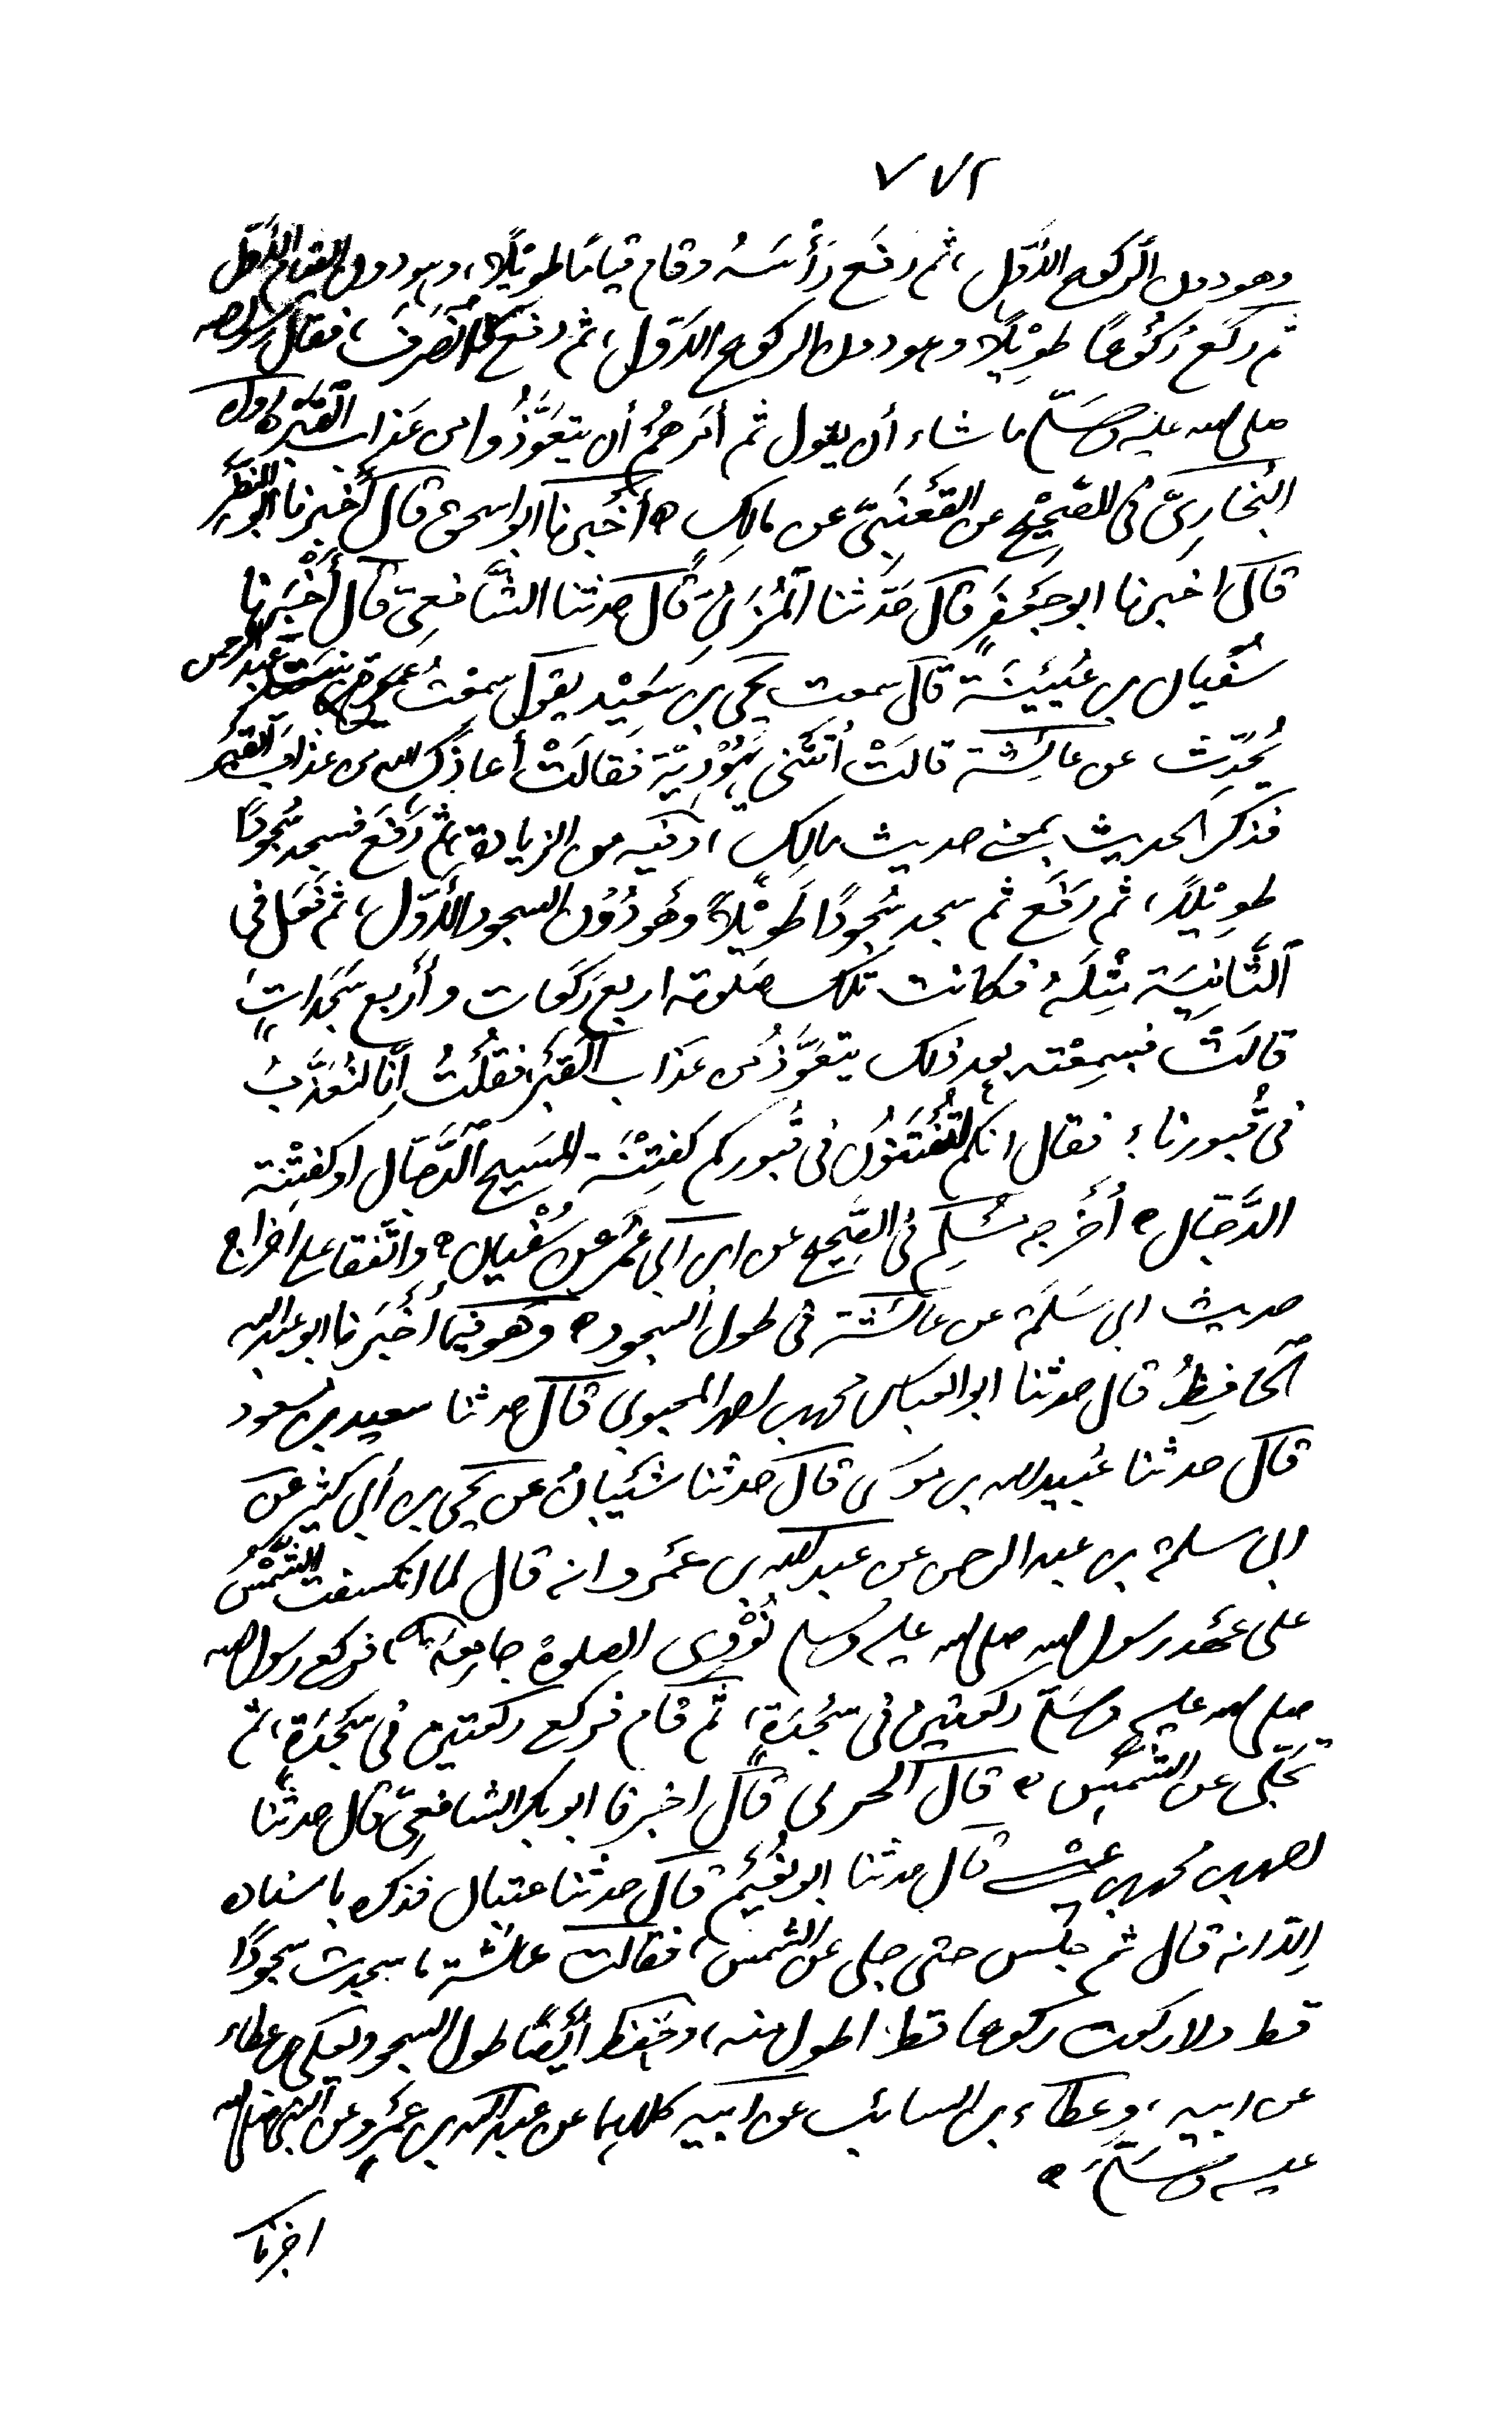 ٧٧٢
وهو دون الركوع الأوّل، ثم رفع رَأْسَهُ وقام قيامًا طويْلًا، وهو دون القيام الأوّل
ثم ركَعَ رُكُوعًا طوِيْلًا وهو دون الركوع الأوّل، ثم رفع ثم انْصَرَفَ، فقال رسول الله
صلى الله عليه وسلّم ما شاء أن يقول ثم أمَرهُمْ أن يتعَوَّذُوا من عَذاب القَبْرِ ه رواه
البُخارِىّ فى الصّحِيْحِ عن القَعْنَبِىّ عن مالِكٍ ه أَخْبرنا ابو اسحق قال أَخْبرنا ابو النضْرِ
قال اخبرنا ابو جَعْفَرٍ قال حَدّثنا الْمُزَنىُّ قال حدثنا الشَّافعِىّ قال أَخْبَرنا
سُفْيان بن عُيَيْنَة قال سمعت يحيى بن سَعِيْد يقول سمعْتُ عمرة بنت عبد الرحمن
يُحدّث عن عائِشة قالَتْ أتَتْنى يَهُوْدِيّة فَقالَتْ أعاذكِ الله من عذاب القَبْر
فذكر الحديث بمعنى حديث مالِكٍ، وفيه من الزيادة ثم رَفعَ فسجد سُجُودًا
طوِيْلًا، ثم رَفعَ ثم سجد سُجُودًا طَوِيْلًا وهُو دُوْن السجود الأَوّل، ثم فعَل فى
الثَّانِيَة مِثْلَهُ فكانت تلك صَلوته اربع رَكَعات وأَربع سَجَداتٍ
قالَتْ فسمِعْته بعد ذلك يتعَوَّذُ من عَذاب القَبْرِ، فقلْتُ اِنّا لنُعَذَّبُ
فى قُبورنا، فقال انكم لتُفْتَنُوْنَ فى قُبوركم كفِتْنَة المسِيح الدَّجّال او كفِتْنة
الدَّجّال ه أَخْرجه مُسْلِم فى الصَّحِيح عن ابن ابى عُمَرَ عن سُفْيان ه واتّفقا على اخراج
حديث ابى سَلمَة عن عائشة فى طول السجود ه وهو فيما أَخْبَرنا ابو عبد الله
الحافِظُ قال حدثنا ابو العباس محمد بن احمد المحبوبى قال حدثنا سعيد بن مسعود
قال حدثنا عُبيد الله بن موسى قال حدثنا شَيْبانُ عن يحيى بن أبى كثير عن
ابى سلمة بن عبد الرحمن عن عبد الله بن عَمْرو انه قال لما انكسفت الشَّمْسُ
على عهْد رسول الله صلى الله عليه وسلم نُوْدِى الصلوة جامِعة، فركع رسول الله
صلى الله عليه وسلّم ركعتين فى سَجْدَةٍ، ثم قام فركع ركعتين فى سَجْدَةٍ، ثم
تجَلّى عن الشمْسِ ه قال الحربى قال اخبرنا ابو بكر الشافعِىّ قال حدثنا
احمد بن محمد بن عيسى قال حدثنا ابو نُعَيْم قال حدثنا شيبان فذكره باسناده
اِلّا انه قال ثم جلَس حتى جلى عن الشمس، فقالت عائشة ما سجدت سجودًا
قط ولا ركعت ركوعا قط اطول منه، وحَفِظ أَيْضًا طول السجود يعلى بن عطاء
عن ابيه، وعَطاء بن السائب عن ابيه كلاهما عن عبد الله بن عَمْرٍو عن النبى صلى الله
عليه وسَلّم ه
اخبرنا